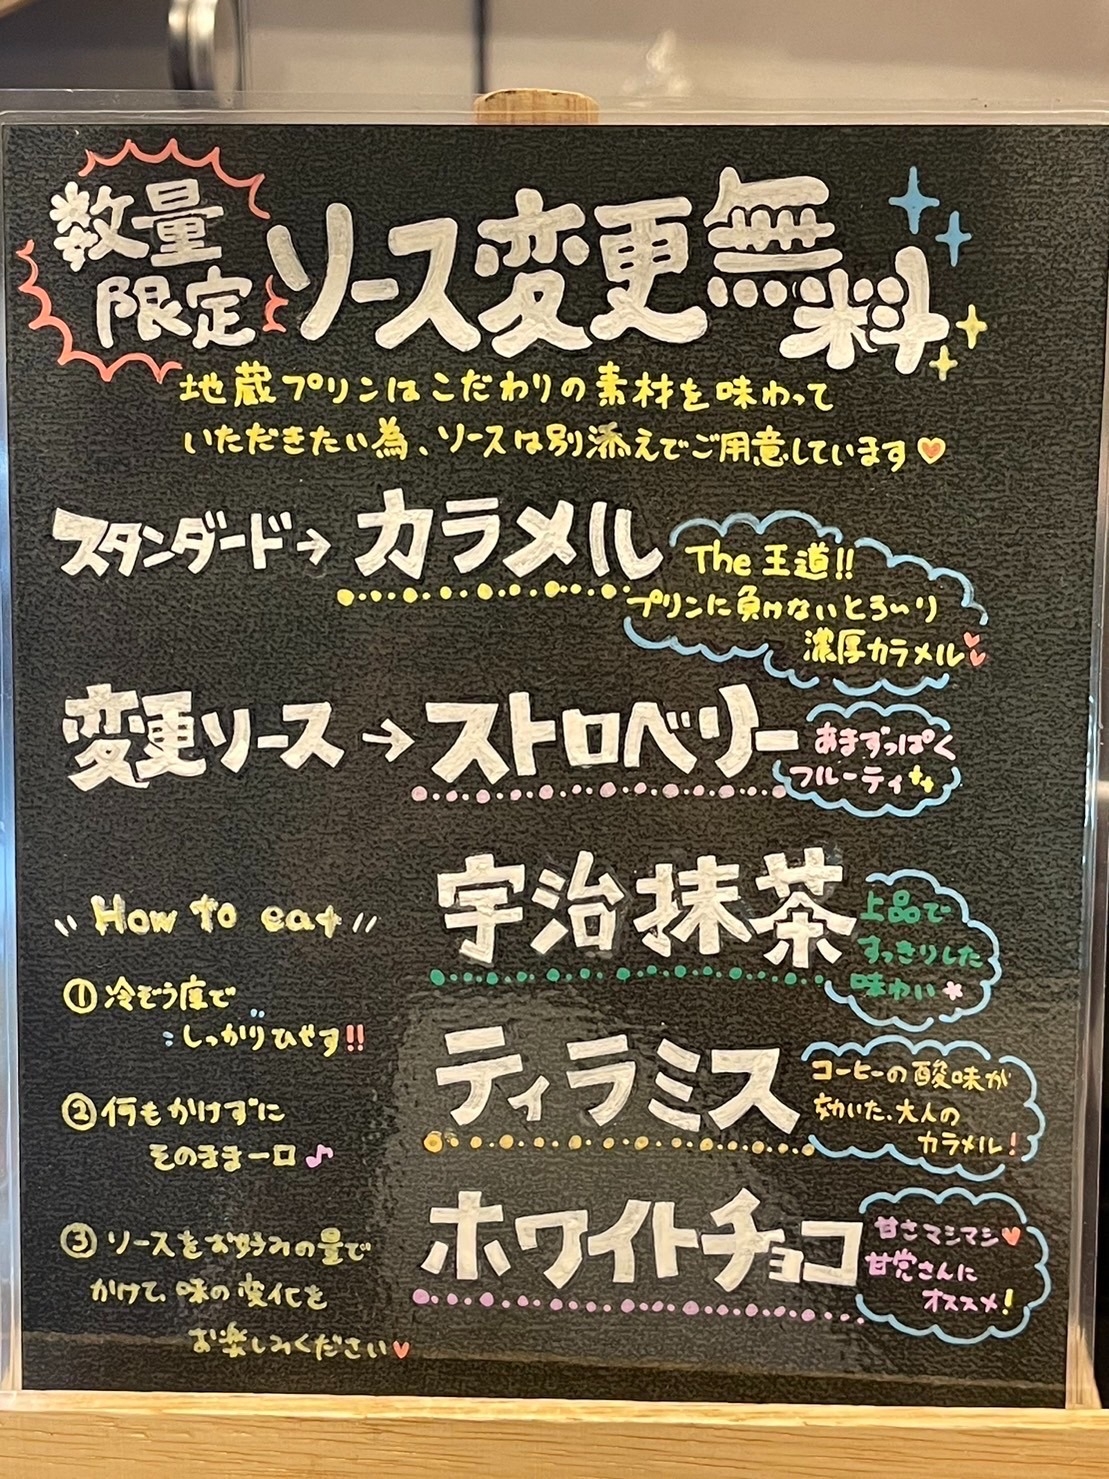 数量
限定
ソース変更無料
地蔵プリンはこだわりの素材を味わって
いただきたい為、ソースは別添えでご用意しています♥
スタンダード→カラメル
The 王道!!
プリンに負けないとろ〜り
濃厚カラメル
変更ソース→ストロベリー
あまずっぱく
フルーティ
宇治抹茶
上品で
すっきりした
味わい
ティラミス
コーヒーの酸味が
効いた、大人の
カラメル!
ホワイトチョコ
甘さマシマシ♥
甘党さんに
オススメ!
How to eat
①冷ぞう庫で
しっかりひやす!!
②何もかけずに
そのまま一口♪
③ソースをお好みの量で
かけて、味の変化を
お楽しみください♥